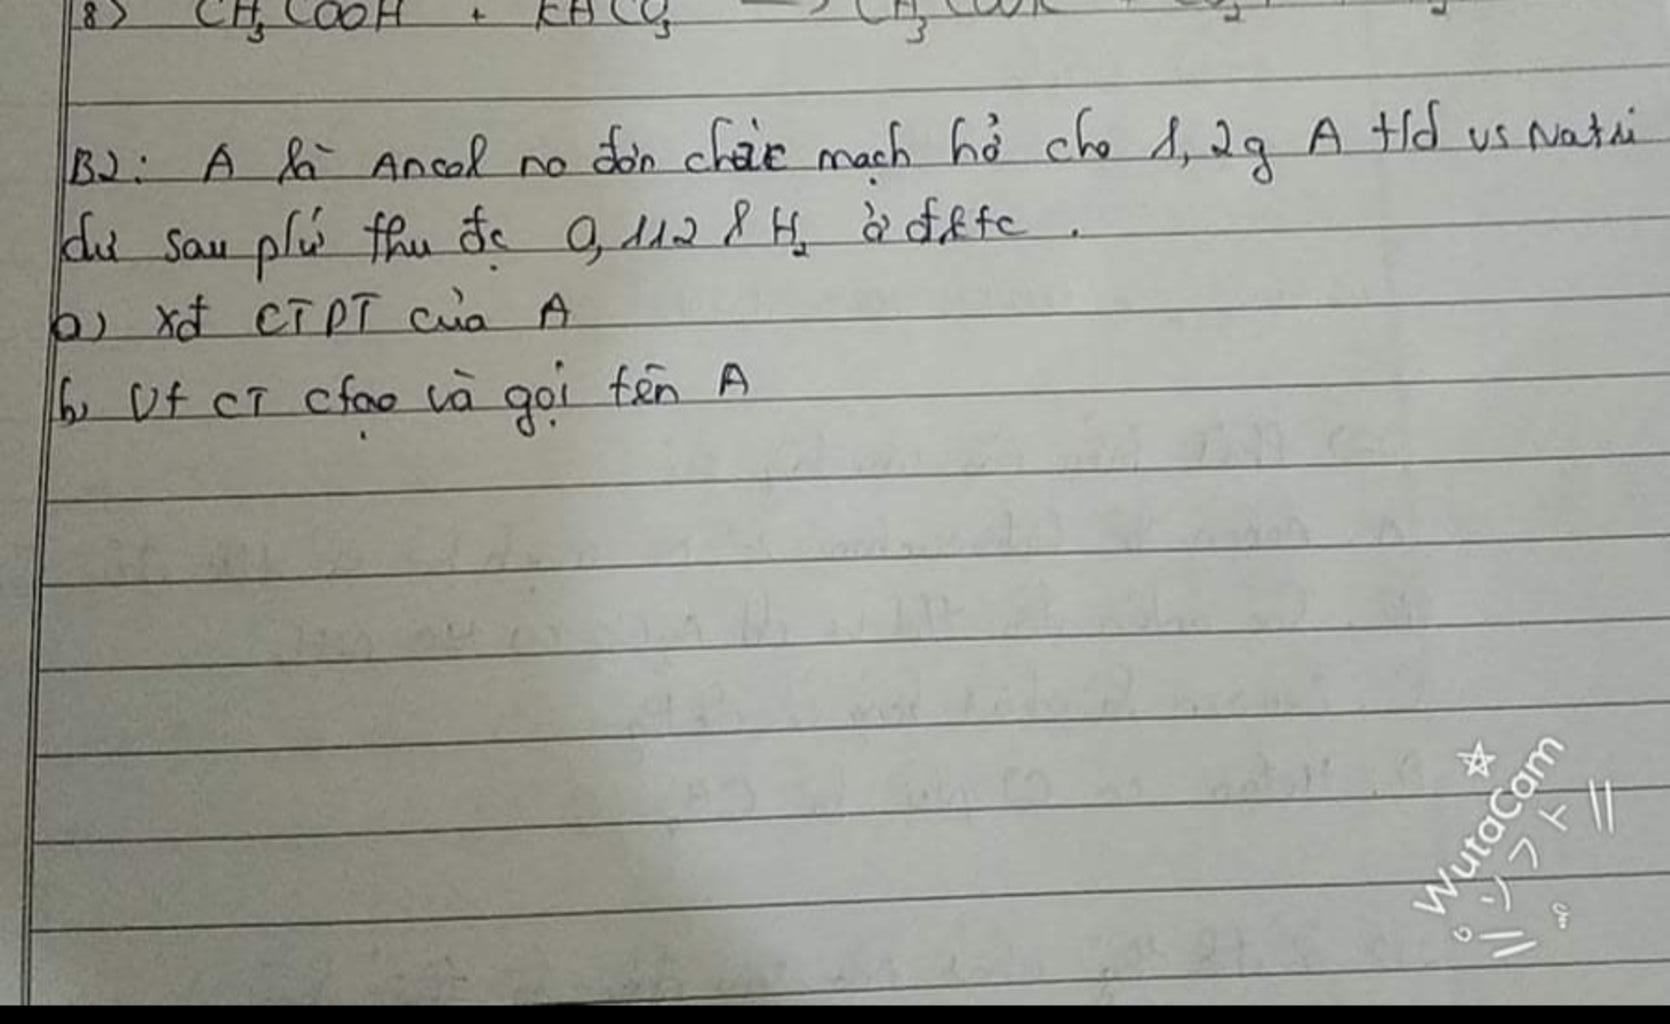 8) CH₃COOH + KHCO₃ → CH₃COOK + CO₂
B2: A là Ancol no đơn chức mạch hở cho 1,2g A t/d vs Natri
dư sau p/ứ thu đc 0,112 l H₂ ở đktc.
a) xđ CTPT của A
b) Vt CT ctạo và gọi tên A
WutaCam